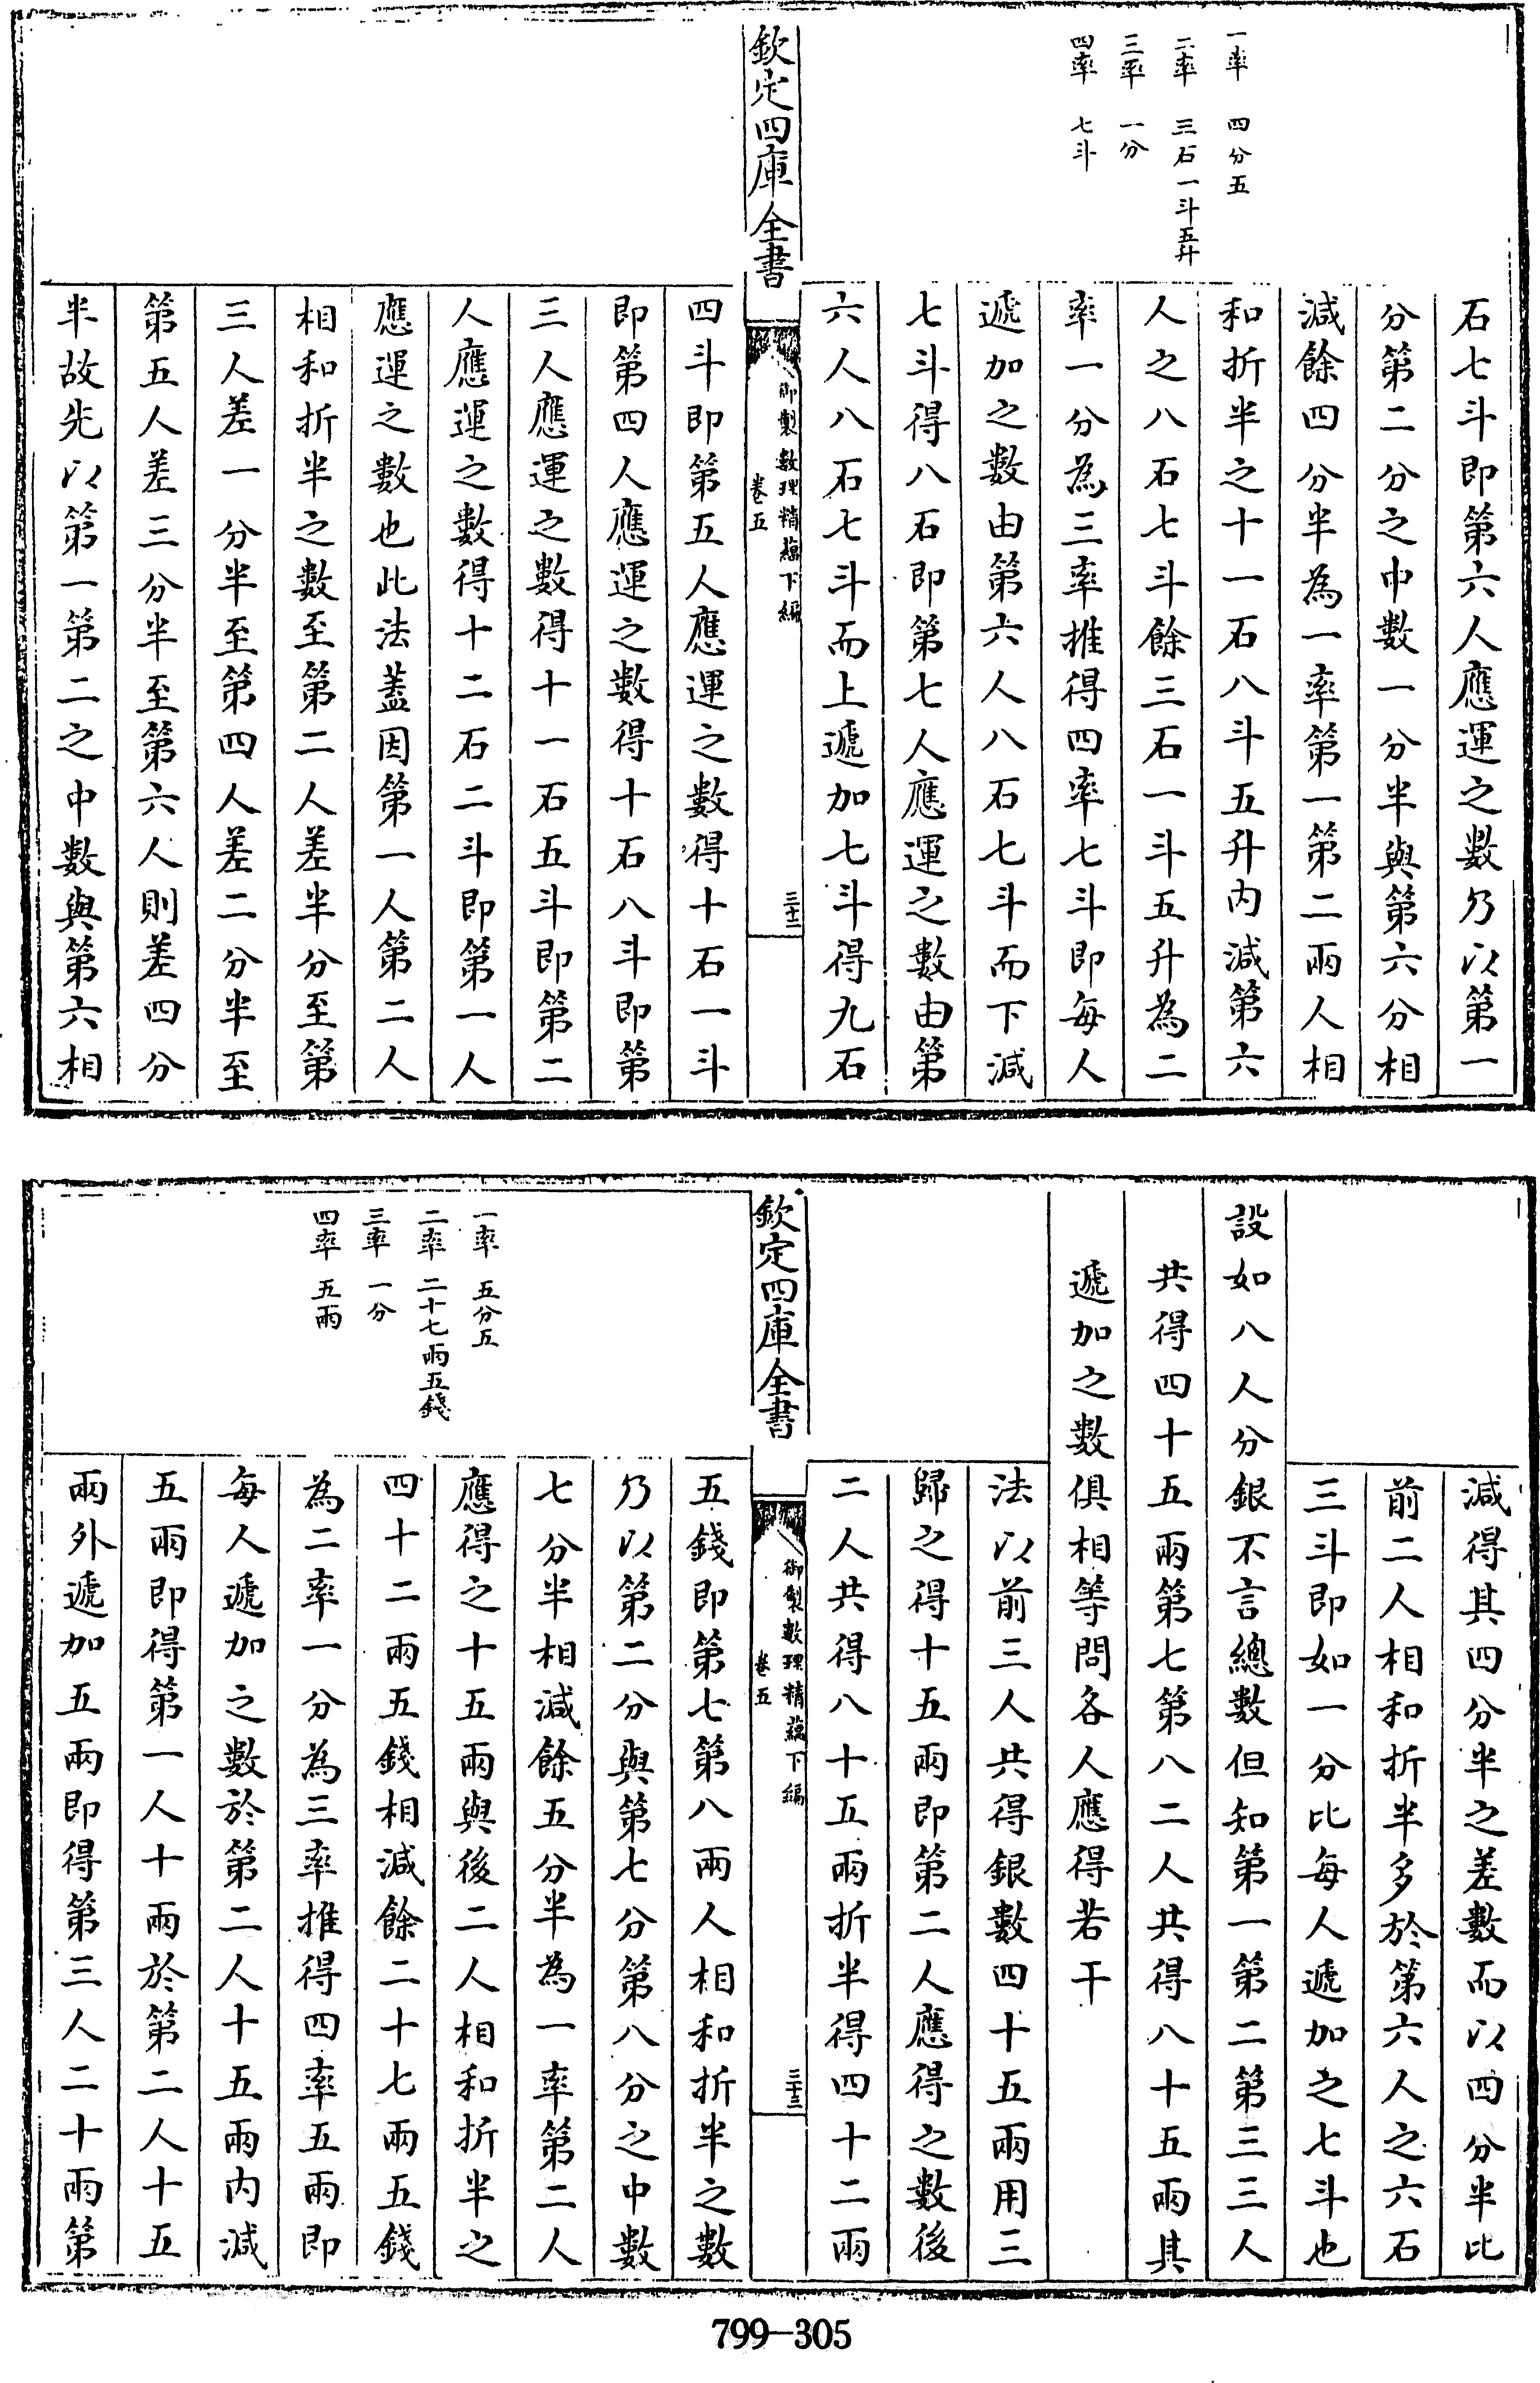 一率 四分五
二率 三石一斗五升
三率 一分
四率 七斗
石七斗即第六人應運之數乃以第一
分第二分之中數一分半與第六分相
減餘四分半為一率第一第二兩人相
和折半之十一石八斗五升內減第六
人之八石七斗餘三石一斗五升為二
率一分為三率推得四率七斗即每人
遞加之數由第六人八石七斗而下減
七斗得八石即第七人應運之數由第
六人八石七斗而上遞加七斗得九石
欽定四庫全書
御製數理精蘊下編
卷五
三十二
四斗即第五人應運之數得十石一斗
即第四人應運之數得十石八斗即第
三人應運之數得十一石五斗即第二
人應運之數得十二石二斗即第一人
應運之數也此法蓋因第一人第二人
相和折半之數至第二人差半分至第
三人差一分半至第四人差二分半至
第五人差三分半至第六人則差四分
半故先以第一第二之中數與第六相
減得其四分半之差數而以四分半比
前二人相和折半多於第六人之六石
三斗即如一分比每人遞加之七斗也
設如八人分銀不言總數但知第一第二第三三人
共得四十五兩第七第八二人共得八十五兩其
遞加之數俱相等問各人應得若干
法以前三人共得銀數四十五兩用三
歸之得十五兩即第二人應得之數後
二人共得八十五兩折半得四十二兩
欽定四庫全書
御製數理精蘊下編
卷五
三十三
一率 五分五
二率 二十七兩五錢
三率 一分
四率 五兩
五錢即第七第八兩人相和折半之數
乃以第二分與第七分第八分之中數
七分半相減餘五分半為一率第二人
應得之十五兩與後二人相和折半之
四十二兩五錢相減餘二十七兩五錢
為二率一分為三率推得四率五兩即
每人遞加之數於第二人十五兩內減
五兩即得第一人十兩於第二人十五
兩外遞加五兩即得第三人二十兩第
799-305